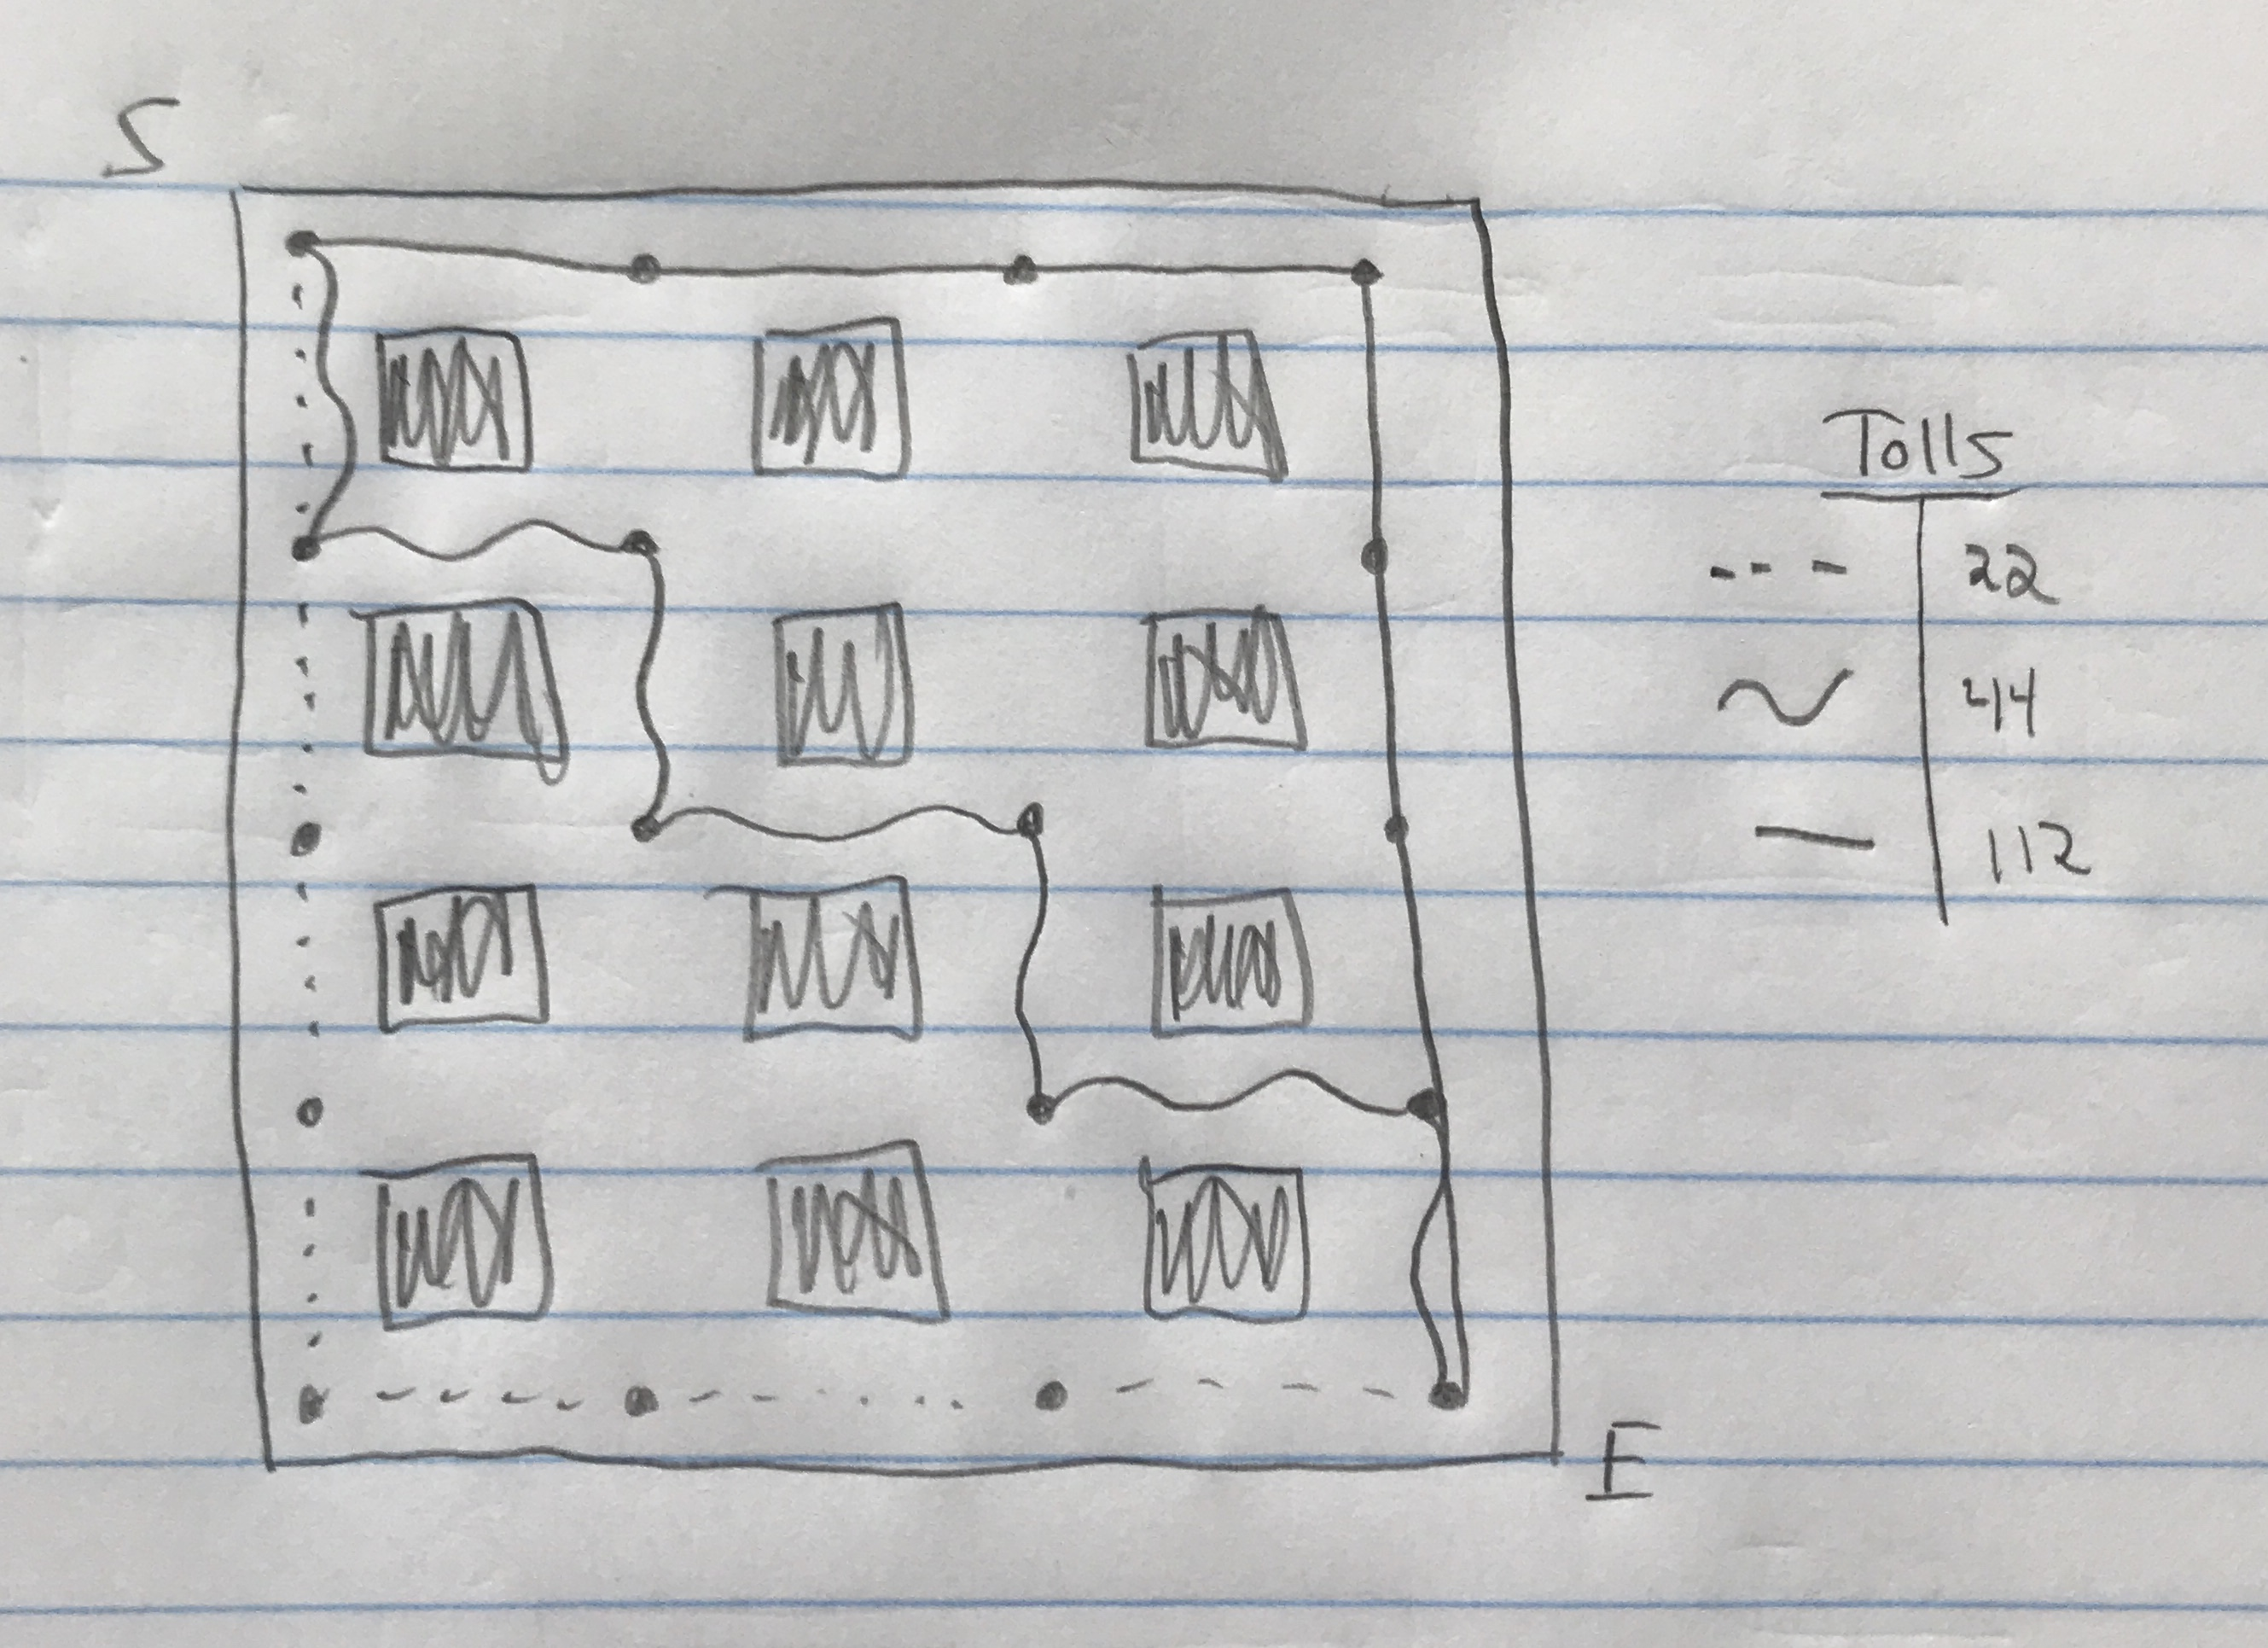 S
Tolls
--- 22
~ 44
— 112
E